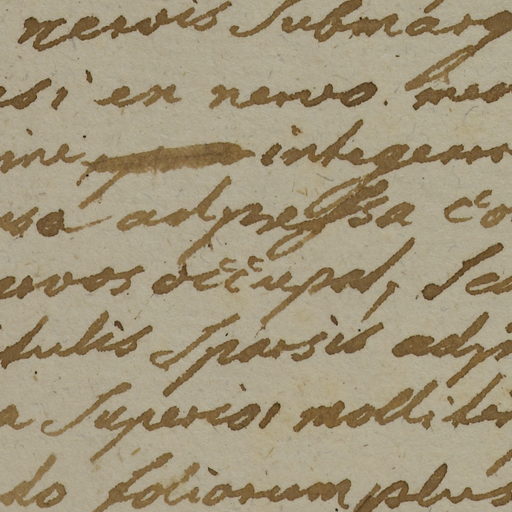 nervis submarg
esi en nervo. med
ine integerr
usa adpressa co
ervos occupat, sca
itulis sparsis adp
a superiori molliter
do foliorum plus